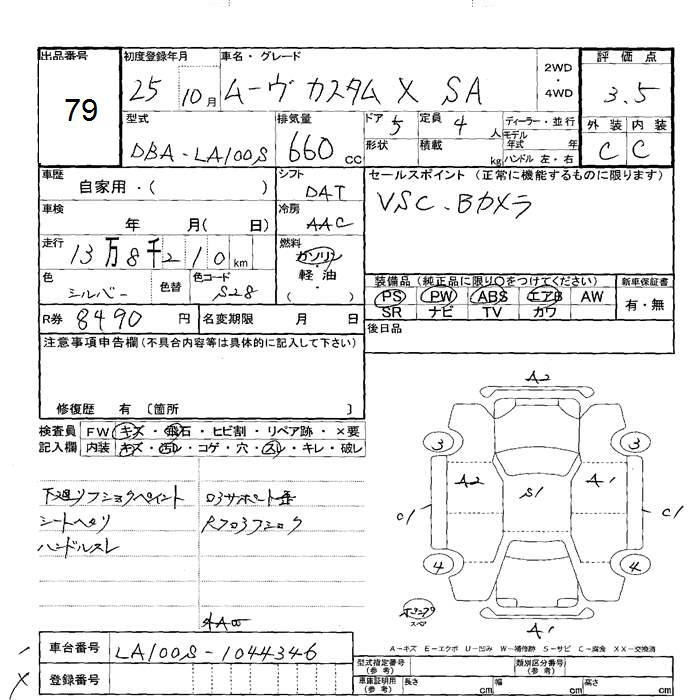 出品番号 初度登録年月 車名・グレード 2WD・4WD 評価点
79 25 10月 ムーヴ カスタム X SA 3.5
型式 排気量 ドア 5 定員 4人 ディーラー・並行 外装 内装
DBA-LA100S 660cc 形状 積載 kg モデル年式 年 ハンドル 左・右 C C
車歴 自家用・( ) シフト DAT セールスポイント (正常に機能するものに限ります)
車検 年 月( 日) 冷房 AAC VSC・Bカメラ
走行 13万8千210km 燃料 ガソリン・軽油 ( )
色 シルバー 色替 色コード S28 装備品 (純正品に限り○をつけてください) 新車保証書
PS PW ABS エアB AW 有・無
SR ナビ TV カワ
R券 8490円 名変期限 月 日 後日品
注意事項申告欄(不具合内容等は具体的に記入して下さい)
修復歴 有 〔箇所 〕
検査員 FW キズ・飛石・ヒビ割・リペア跡・×要
記入欄 内装 キズ・汚れ・コゲ・穴・スレ・キレ・破レ
シートヘタリ
ハンドルスレ
A2
3 3
A2 S1 A1
C1 C1
4 4
スペア
A1
A-キズ E-エクボ U-凹み W-補修跡 S-サビ C-腐食 XX-交換済
車台番号 LA100S-1044346
登録番号
型式指定番号(参考) 類別区分番号(参考)
車庫証明用(参考) 長さ cm 幅 cm 高さ cm